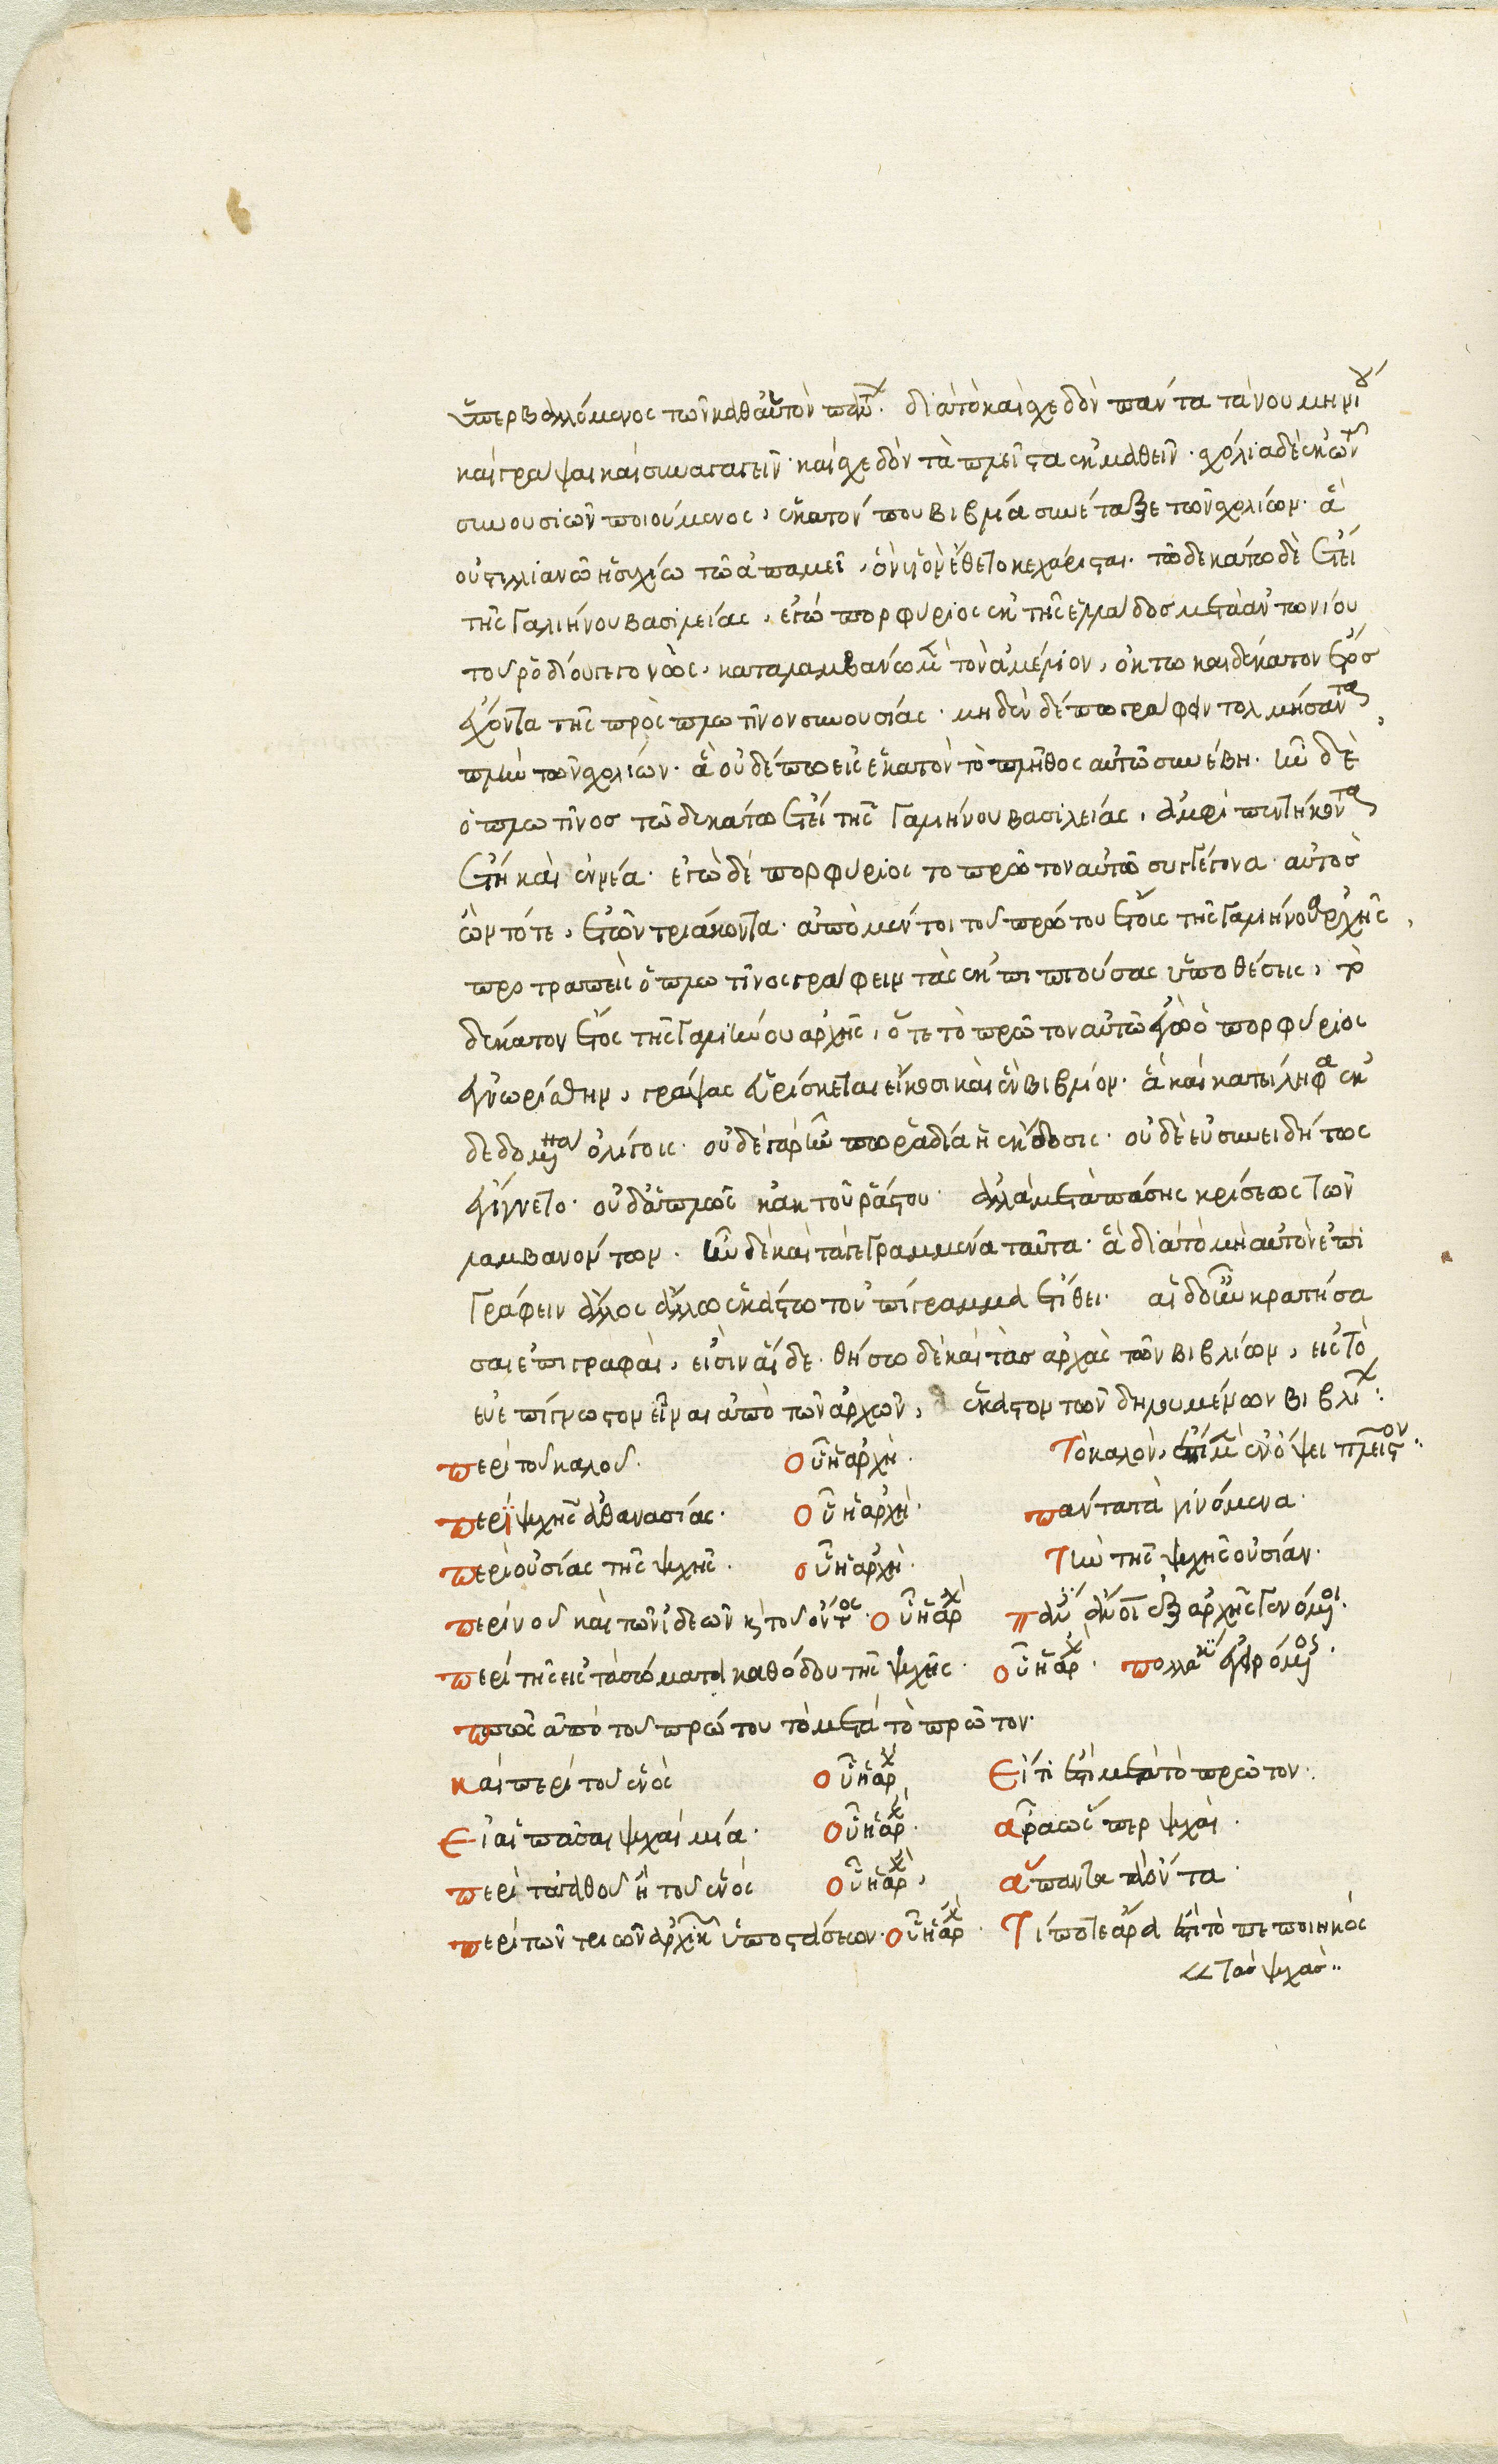 ὑπερβαλλόμενος τῶν καθ' αὑτὸν πάντων· διὰ τὸ καὶ σχεδὸν πάντα τὰ νουμηνίου
καὶ γράψαι καὶ συναγαγεῖν· καὶ σχεδὸν τὰ πλεῖστα ἐκμαθεῖν· σχόλια δὲ ἐκ τῶν
συνουσιῶν ποιούμενος, ἑκατόν που βιβλία συνέταξε τῶν σχολίων· ἃ
οὐστιλλιανῷ ἡσυχίῳ τῷ ἀπαμεῖ, ὃν υἱὸν ἔθετο κεχάρισται. τῷ δεκάτῳ δὲ ἔτει
τῆς Γαλιήνου βασιλείας, ἐγὼ πορφύριος ἐκ τῆς ἑλλάδος μετὰ ἀντωνίου
τοῦ ῥοδίου γεγονὼς, καταλαμβάνω μὲν τὸν ἀμέλιον, ὀκτωκαιδέκατον ἔτος
ἔχοντα τῆς πρὸς πλωτῖνον συνουσίας· μηδὲν δέ πω γράφειν τολμήσαντα,
πλὴν τῶν σχολίων· ἃ οὐδέπω εἰς ἑκατὸν τὸ πλῆθος αὐτῷ συνέβη. ἦν δὲ
ὁ πλωτῖνος τῷ δεκάτῳ ἔτει τῆς Γαλιήνου βασιλείας, ἀμφὶ πεντήκοντα
ἔτη καὶ ἐννέα· ἐγὼ δὲ πορφύριος τὸ πρῶτον αὐτῷ συγγέγονα αὐτὸς
ὢν τότε, ἐτῶν τριάκοντα· ἀπὸ μέντοι τοῦ πρώτου ἔτους τῆς Γαλιήνου ἀρχῆς,
προτραπεὶς ὁ πλωτῖνος γράφειν τὰς ἐμπιπτούσας ὑποθέσεις, τὸ
δέκατον ἔτος τῆς Γαλιήνου ἀρχῆς, ὅτε τὸ πρῶτον αὐτῷ ἐγὼ ὁ πορφύριος
ἐγνωρίσθην, γράψας εὑρίσκεται εἴκοσι καὶ ἓν βιβλίον· ἃ καὶ κατείληφα ἐκ
δεδομένα ὀλίγοις· οὐδὲ γὰρ ἦν πω ῥᾳδία ἡ ἔκδοσις· οὐδὲ εὐσυνειδήτως
ἐγίγνετο· οὐδ' ἁπλῶς κἀκ τοῦ ῥᾴστου· ἀλλὰ μετὰ πάσης κρίσεως τῶν
λαμβανόντων. ἦν δὲ καὶ τὰ γεγραμμένα ταῦτα· ἃ διὰ τὸ μὴ αὐτὸν ἐπι
γράφειν ἄλλος ἄλλως ἑκάστῳ τοὐπίγραμμα ἐτίθει· αἱ δ' οὖν κρατήσα
σαι ἐπιγραφαὶ, εἰσὶν αἵδε· θήσω δὲ καὶ τὰς ἀρχὰς τῶν βιβλίων, εἰς τὸ
εὐεπίγνωστον εἶναι ἀπὸ τῶν ἀρχῶν, ἕκαστον τῶν δηλουμένων βιβλίων:
περὶ τοῦ καλοῦ. οὗ ἡ ἀρχή. Τὸ καλὸν, ἔστι μὲν ἐν ὄψει πλεῖστον..
περὶ ψυχῆς ἀθανασίας. οὗ ἡ ἀρχή. πάντα τὰ γινόμενα.
περὶ οὐσίας τῆς ψυχῆς. οὗ ἡ ἀρχή. Τὴν τῆς ψυχῆς οὐσίαν.
περὶ νοῦ καὶ τῶν ἰδεῶν κ τοῦ ὄντος. οὗ ἡ ἀρχ πάντες ἄνοι ἐξ ἀρχῆς γενόμενοι.
περὶ τῆς εἰς τὰ σώματα καθόδου τῆς ψυχῆς. οὗ ἡ ἀρχ. πολλάκις ἐγειρόμενος.
πῶς ἀπὸ τοῦ πρώτου τὸ μετὰ τὸ πρῶτον.
καὶ περὶ τοῦ ἑνός οὗ ἡ ἀρχ Εἴ τι ἔστι μετὰ τὸ πρῶτον.
Εἰ αἱ πᾶσαι ψυχαὶ μία. οὗ ἡ ἀρχ. ἆρα ὥσπερ ψυχὴ.
περὶ τἀγαθοῦ ἢ τοῦ ἑνός οὗ ἡ ἀρχ, ἅπαντα τὰ ὄντα.
περὶ τῶν τριῶν ἀρχικῶν ὑποστάσεων. οὗ ἡ ἀρχ. Τί ποτε ἄρα ἐστὶ τὸ πεποιηκὸς
τὰς ψυχὰς..